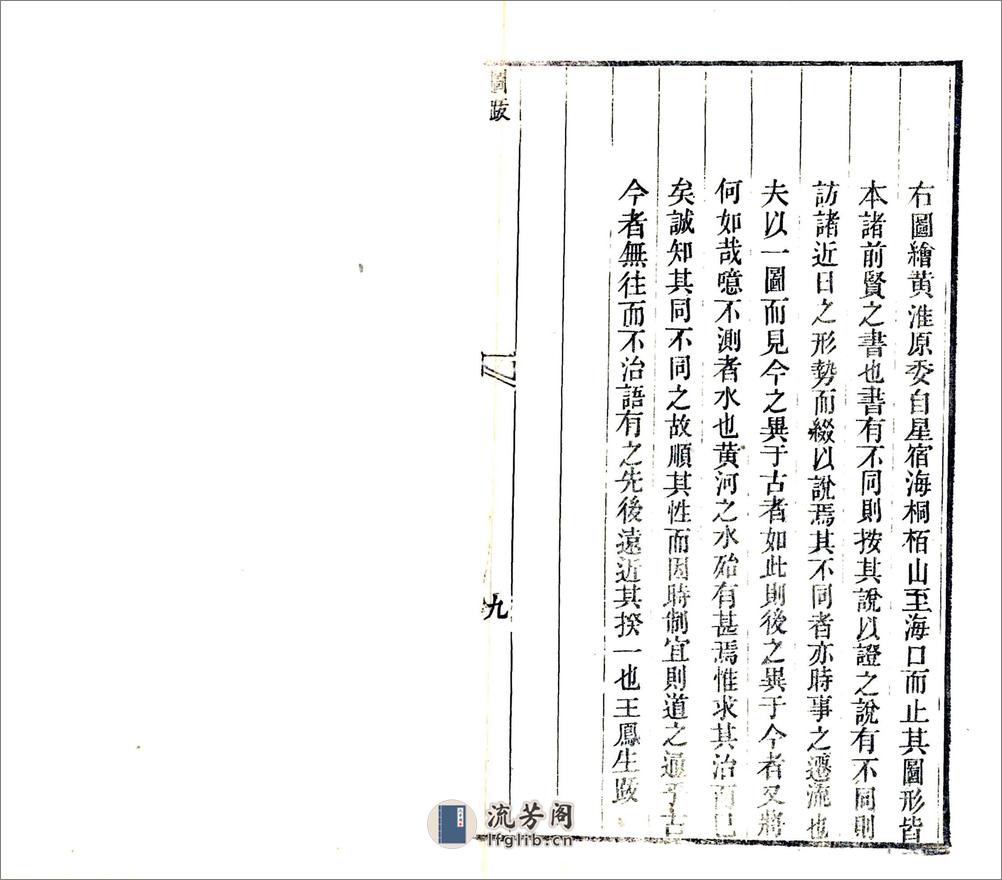 右圖繪黃淮原委自星宿海桐栢山至海口而止其圖形皆
本諸前賢之書也書有不同則按其說以證之說有不同則
訪諸近日之形勢而綴以說焉其不同者亦時事之遷流也
夫以一圖而見今之異于古者如此則後之異于今者又將
何如哉噫不測者水也黃河之水殆有甚焉惟求其治而已
矣誠知其同不同之故順其性而因時制宜則道之通乎古
今者無往而不治語有之先後遠近其揆一也王鳳生跋
圖跋
九
流芳阁
lfglib.cn